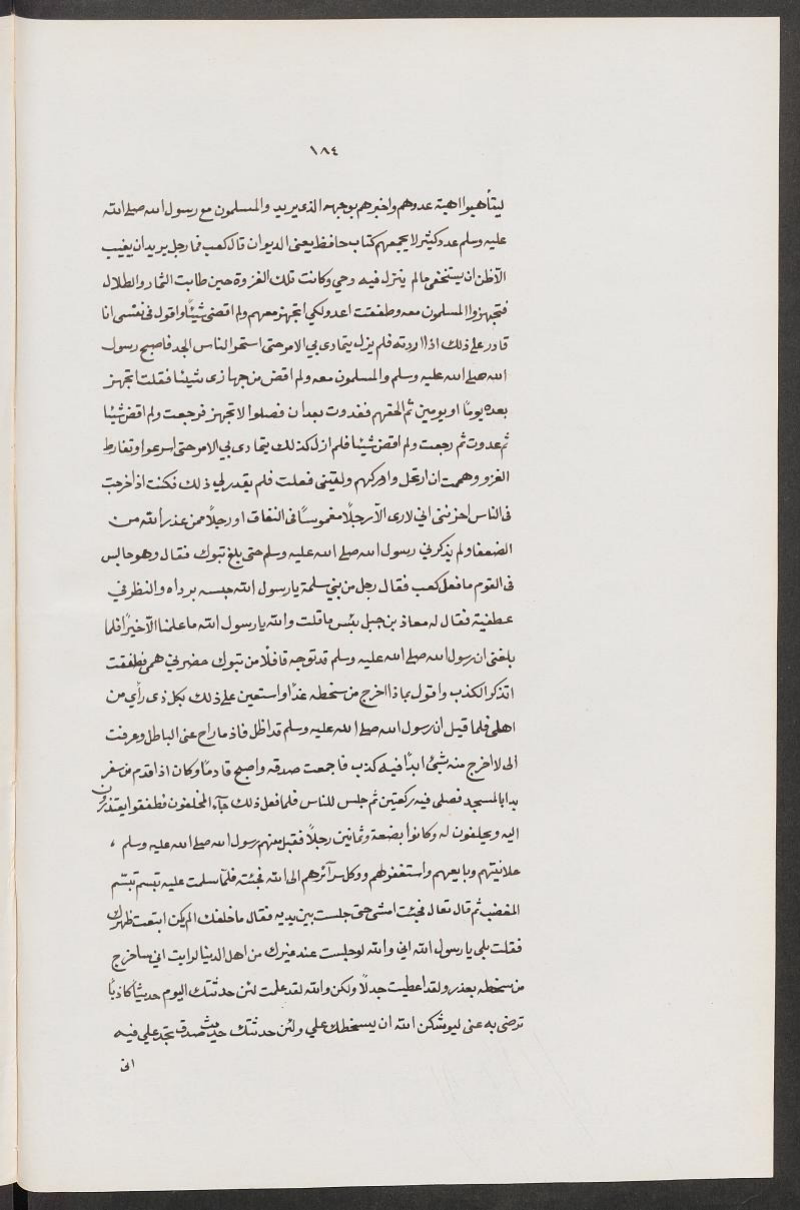 ١٨٤
ليتأهبوا اهبة عدوهم واخبرهم بوجهه الذى يريد والمسلمون مع رسول الله صلى الله
عليه وسلم عدد كثير لا يجمعهم كتاب حافظ يعنى الديوان قال كعب فما رجل يريد ان يغيب
الاظن ان يستخفى مالم ينزل فيه وحي وكانت تلك الغزوة حين طابت الثمار والظلال
فتجهزوا المسلمون معه وطفقت اعد ولكي اتجهز معهم ولم اقضى شيئا واقول فى نفسى انا
قادر على ذلك اذا اردته فلم يزل يتمادى بي الامر حتى استمر الناس الجد فاصبح رسول
الله صلى الله عليه وسلم والمسلمون معه ولم اقض من جهازى شيئا فقلت اتجهز
بعده يومًا او يومين ثم الحقهم فغدوت بعد ان فصلوا لاتجهز فرجعت ولم اقض شيئا
ثم عدوت ثم رجعت ولم اقض شيئا فلم ازل كذلك يتمادى بي الامر حتى اسرعوا وتفارط
الغزو وهممت ان ارتحل وادركهم وليتنى فعلت فلم يقدر لي ذلك فكنت اذا خرجت
فى الناس احزننى اني لا ارى الا رجلًا مغموسًا فى النفاق او رجلًا ممن عذر الله من
الضعفا ولم يذكرني رسول الله صلى الله عليه وسلم حتى بلغ تبوك فقال وهو جالس
فى القوم ما فعل كعب فقال رجل من بني سلمة يا رسول الله حبسه برداه والنظر في
عطفيه فقال له معاذ بن جبل بئس ما قلت والله يا رسول الله ما علمنا الا خيرًا فلما
بلغنى ان رسول الله صلى الله عليه وسلم قد توجه قافلًا من تبوك حضرني همى فطفقت
اتذكر الكذب واقول بماذا اخرج من سخطه غدًا واستعين على ذلك بكل ذى رأي من
اهلى فلما قيل ان رسول الله صلى الله عليه وسلم قد اظل قادما راح عنى الباطل وعرفت
انى لا اخرج منه بشئ ابدًا فيه كذب فاجمعت صدقه واصبح قادمًا وكان اذا قدم من سفر
بدا بالمسجد فصلى فيه ركعتين ثم جلس للناس فلما فعل ذلك جآء المخلفون فطفقوا يعتذرون
اليه ويحلفون له وكانوا بضعة وثمانين رجلًا فقبل منهم رسول الله صلى الله عليه وسلم
علانيتهم وبايعهم واستغفر لهم ووكل سرآئرهم الى الله فجئته فلمّا سلمت عليه تبسم تبسّم
المغضب ثم قال تعال فجئت امشى حتى جلست بين يديه فقال ما خلفك الم يكن ابتعت ظهرك
فقلت بلى يا رسول الله اني والله لو جلست عند غيرك من اهل الدنيا لرايت اني ساخرج
من سخطه بعذر ولقد اعطيت جدلًا ولكن والله لقد علمت لئن حدثتك اليوم حديثًا كاذبًا
ترضى به عنى ليوشكن الله ان يسخطك علي ولئن حدثتك حديث صدق تجد علي فيه
انى